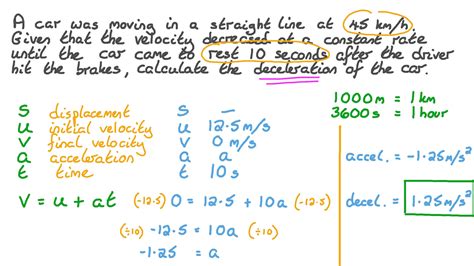 A car was moving in a straight line at 45 km/h.
Given that the velocity decreased at a constant rate
until the car came to rest 10 seconds after the driver
hit the brakes, calculate the deceleration of the car.
1000m = 1km
3600s = 1 hour
S displacement S –
u initial velocity u 12.5m/s
v final velocity v 0 m/s
a acceleration a a
t time t 10s
accel. = -1.25m/s²
V = u + at (-12.5) 0 = 12.5 + 10a (-12.5)
decel. = 1.25m/s²
(÷10) -12.5 = 10a (÷10)
-1.25 = a